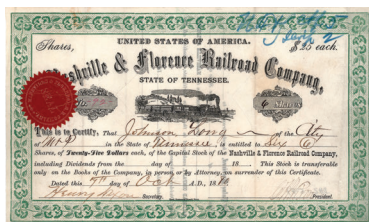 UNITED STATES OF AMERICA.
Shares, $25 each.
Nashville & Florence Railroad Company,
STATE OF TENNESSEE.
Shares
This is to Certify, That Johnson Long of the City
of Mt P in the State of Tennessee is entitled to Six
Shares, of Twenty-Five Dollars each, of the Capital Stock of the Nashville & Florence Railroad Company,
including Dividends from the day of 18 . This Stock is transferable
only on the Books of the Company, in person, or by Attorney, on surrender of this Certificate.
Dated this day of Oct A.D., 18
Henry
Secretary. President.